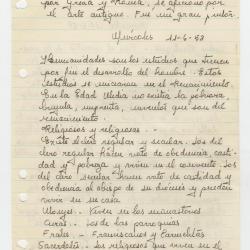 por Grecia y Roma, se aficionó por
el arte antiguo. Fué un gran pintor.
Miércoles 11-6-68
Humanidades son los estudios que tienen
por fin el desarrollo del hombre. Estos
estudios se iniciaron en el Renacimiento.
En la Edad Media no existía la pólvora,
brújula, imprenta, inventos que son del
renacimiento.
Religiosos y religiosas.-
Existe clero regular y secular. Los del
clero regular hacen voto de obediencia, casti-
dad y pobreza y viven en el convento. Los
del clero secular hacen voto de castidad y
obediencia al obispo de su diócesis y pueden
vivir en su casa
Monjes. Viven en los monasterios
Curas. Los de las parroquias
Frailes - Franciscanos y Carmelitas
Sacerdotes. Los religiosos que viven en el